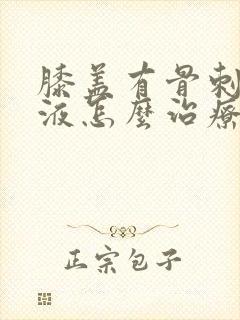 膝盖有骨刺
液怎麼治療
正宗包子